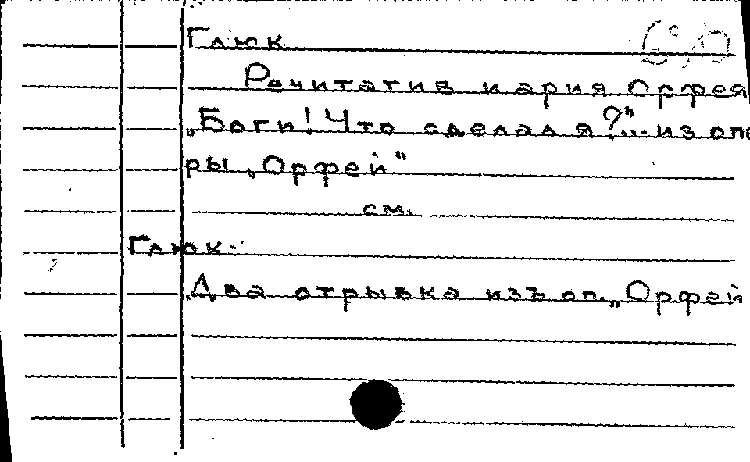 Глюк
Речитатив и ария Орфея
„Боги! Что сделал я?"... из опе
ры „Орфей"
см.
Глюк.
Два отрывка изъ оп. „Орфей